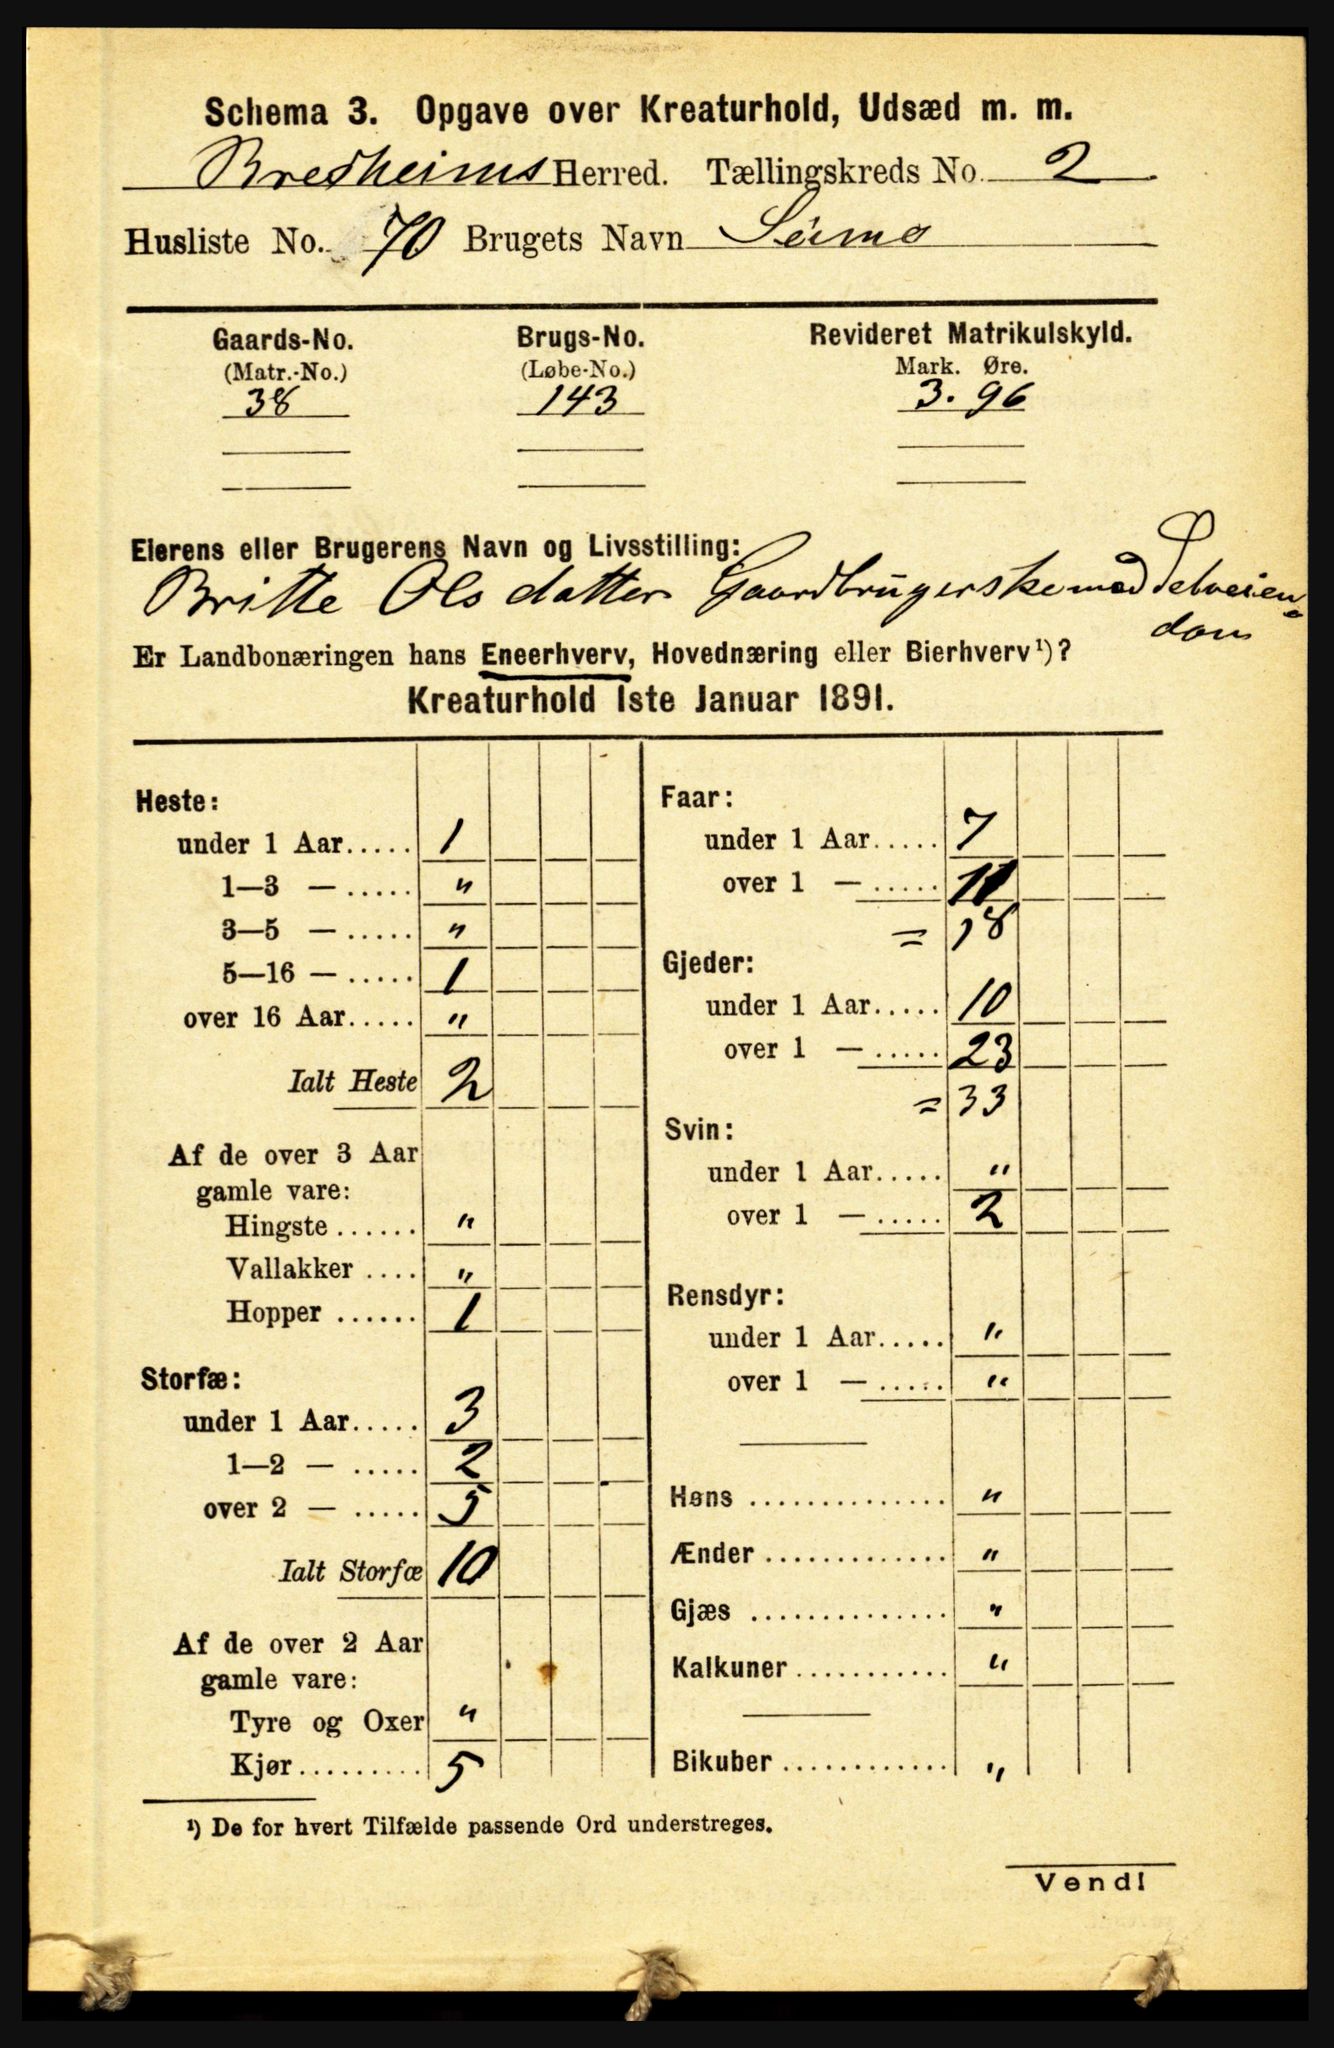 Schema 3. Opgave over Kreaturhold, Udsæd m. m.
Bredheims Herred. Tællingskreds No. 2
Husliste No. 70 Brugets Navn Seime
Gaards-No. Brugs-No. Revideret Matrikulskyld.
(Matr.-No.) (Løbe-No.) Mark. Øre.
38 143 3. 96
Eierens eller Brugerens Navn og Livsstilling:
Britte Olsdatter Gaardbrugerske med Selveien-
dom
Er Landbonæringen hans Eneerhverv, Hovednæring eller Bierhverv¹)?
Kreaturhold 1ste Januar 1891.
Heste:
under 1 Aar..... 1
1—3 — ..... "
3—5 — ..... "
5—16 — ..... 1
over 16 Aar..... "
Ialt Heste 2
Af de over 3 Aar
gamle vare:
Hingste ...... "
Vallakker .... "
Hopper ...... 1
Storfæ:
under 1 Aar..... 3
1—2 — ..... 2
over 2 — ..... 5
Ialt Storfæ 10
Af de over 2 Aar
gamle vare:
Tyre og Oxer "
Kjør......... 5
Faar:
under 1 Aar..... 7
over 1 — ..... 11
= 18
Gjeder:
under 1 Aar..... 10
over 1 — ..... 23
= 33
Svin:
under 1 Aar..... "
over 1 — ..... 2
Rensdyr:
under 1 Aar..... "
over 1 — ..... "
Høns ............... "
Ænder .............. "
Gjæs ............... "
Kalkuner............ "
Bikuber ............. "
¹) De for hvert Tilfælde passende Ord understreges.
Vend!